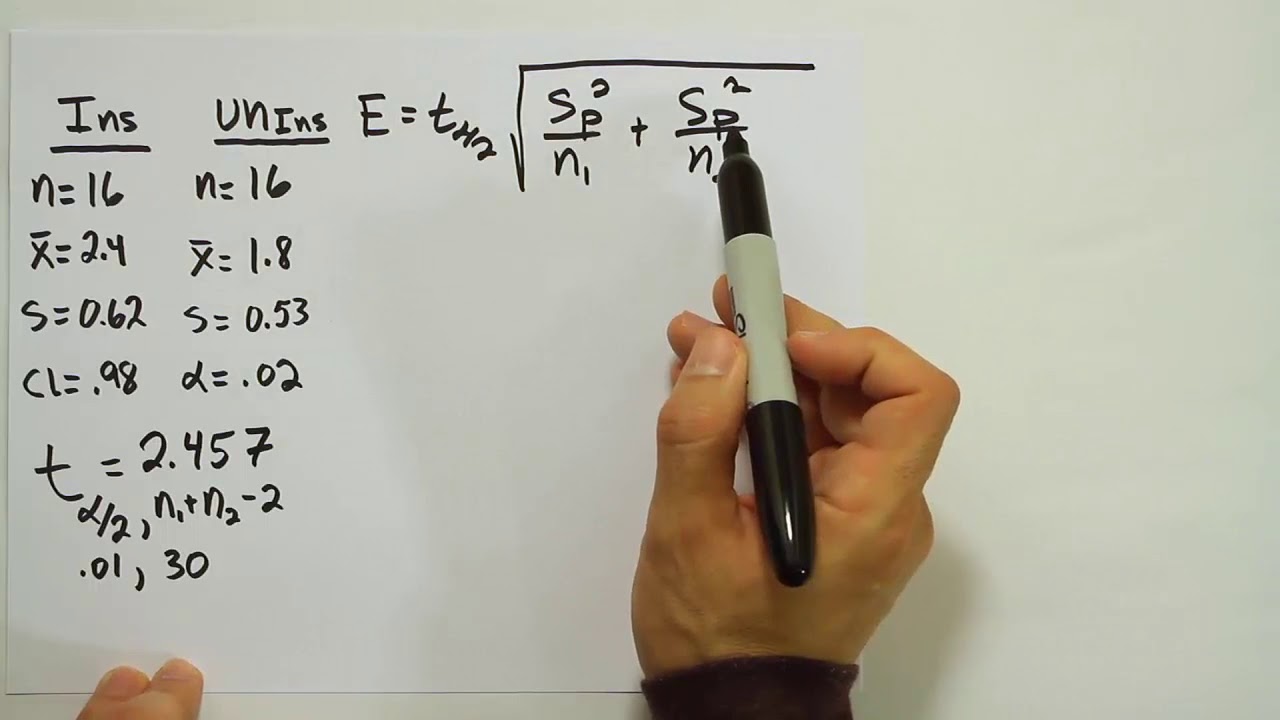 Ins UNIns E = tα/2 √(Sp²/n₁ + Sp²/n
n=16 n=16
x̄=2.4 x̄=1.8
S=0.62 S=0.53
CL=.98 α=.02
t = 2.457
α/2, n₁+n₂-2
.01, 30